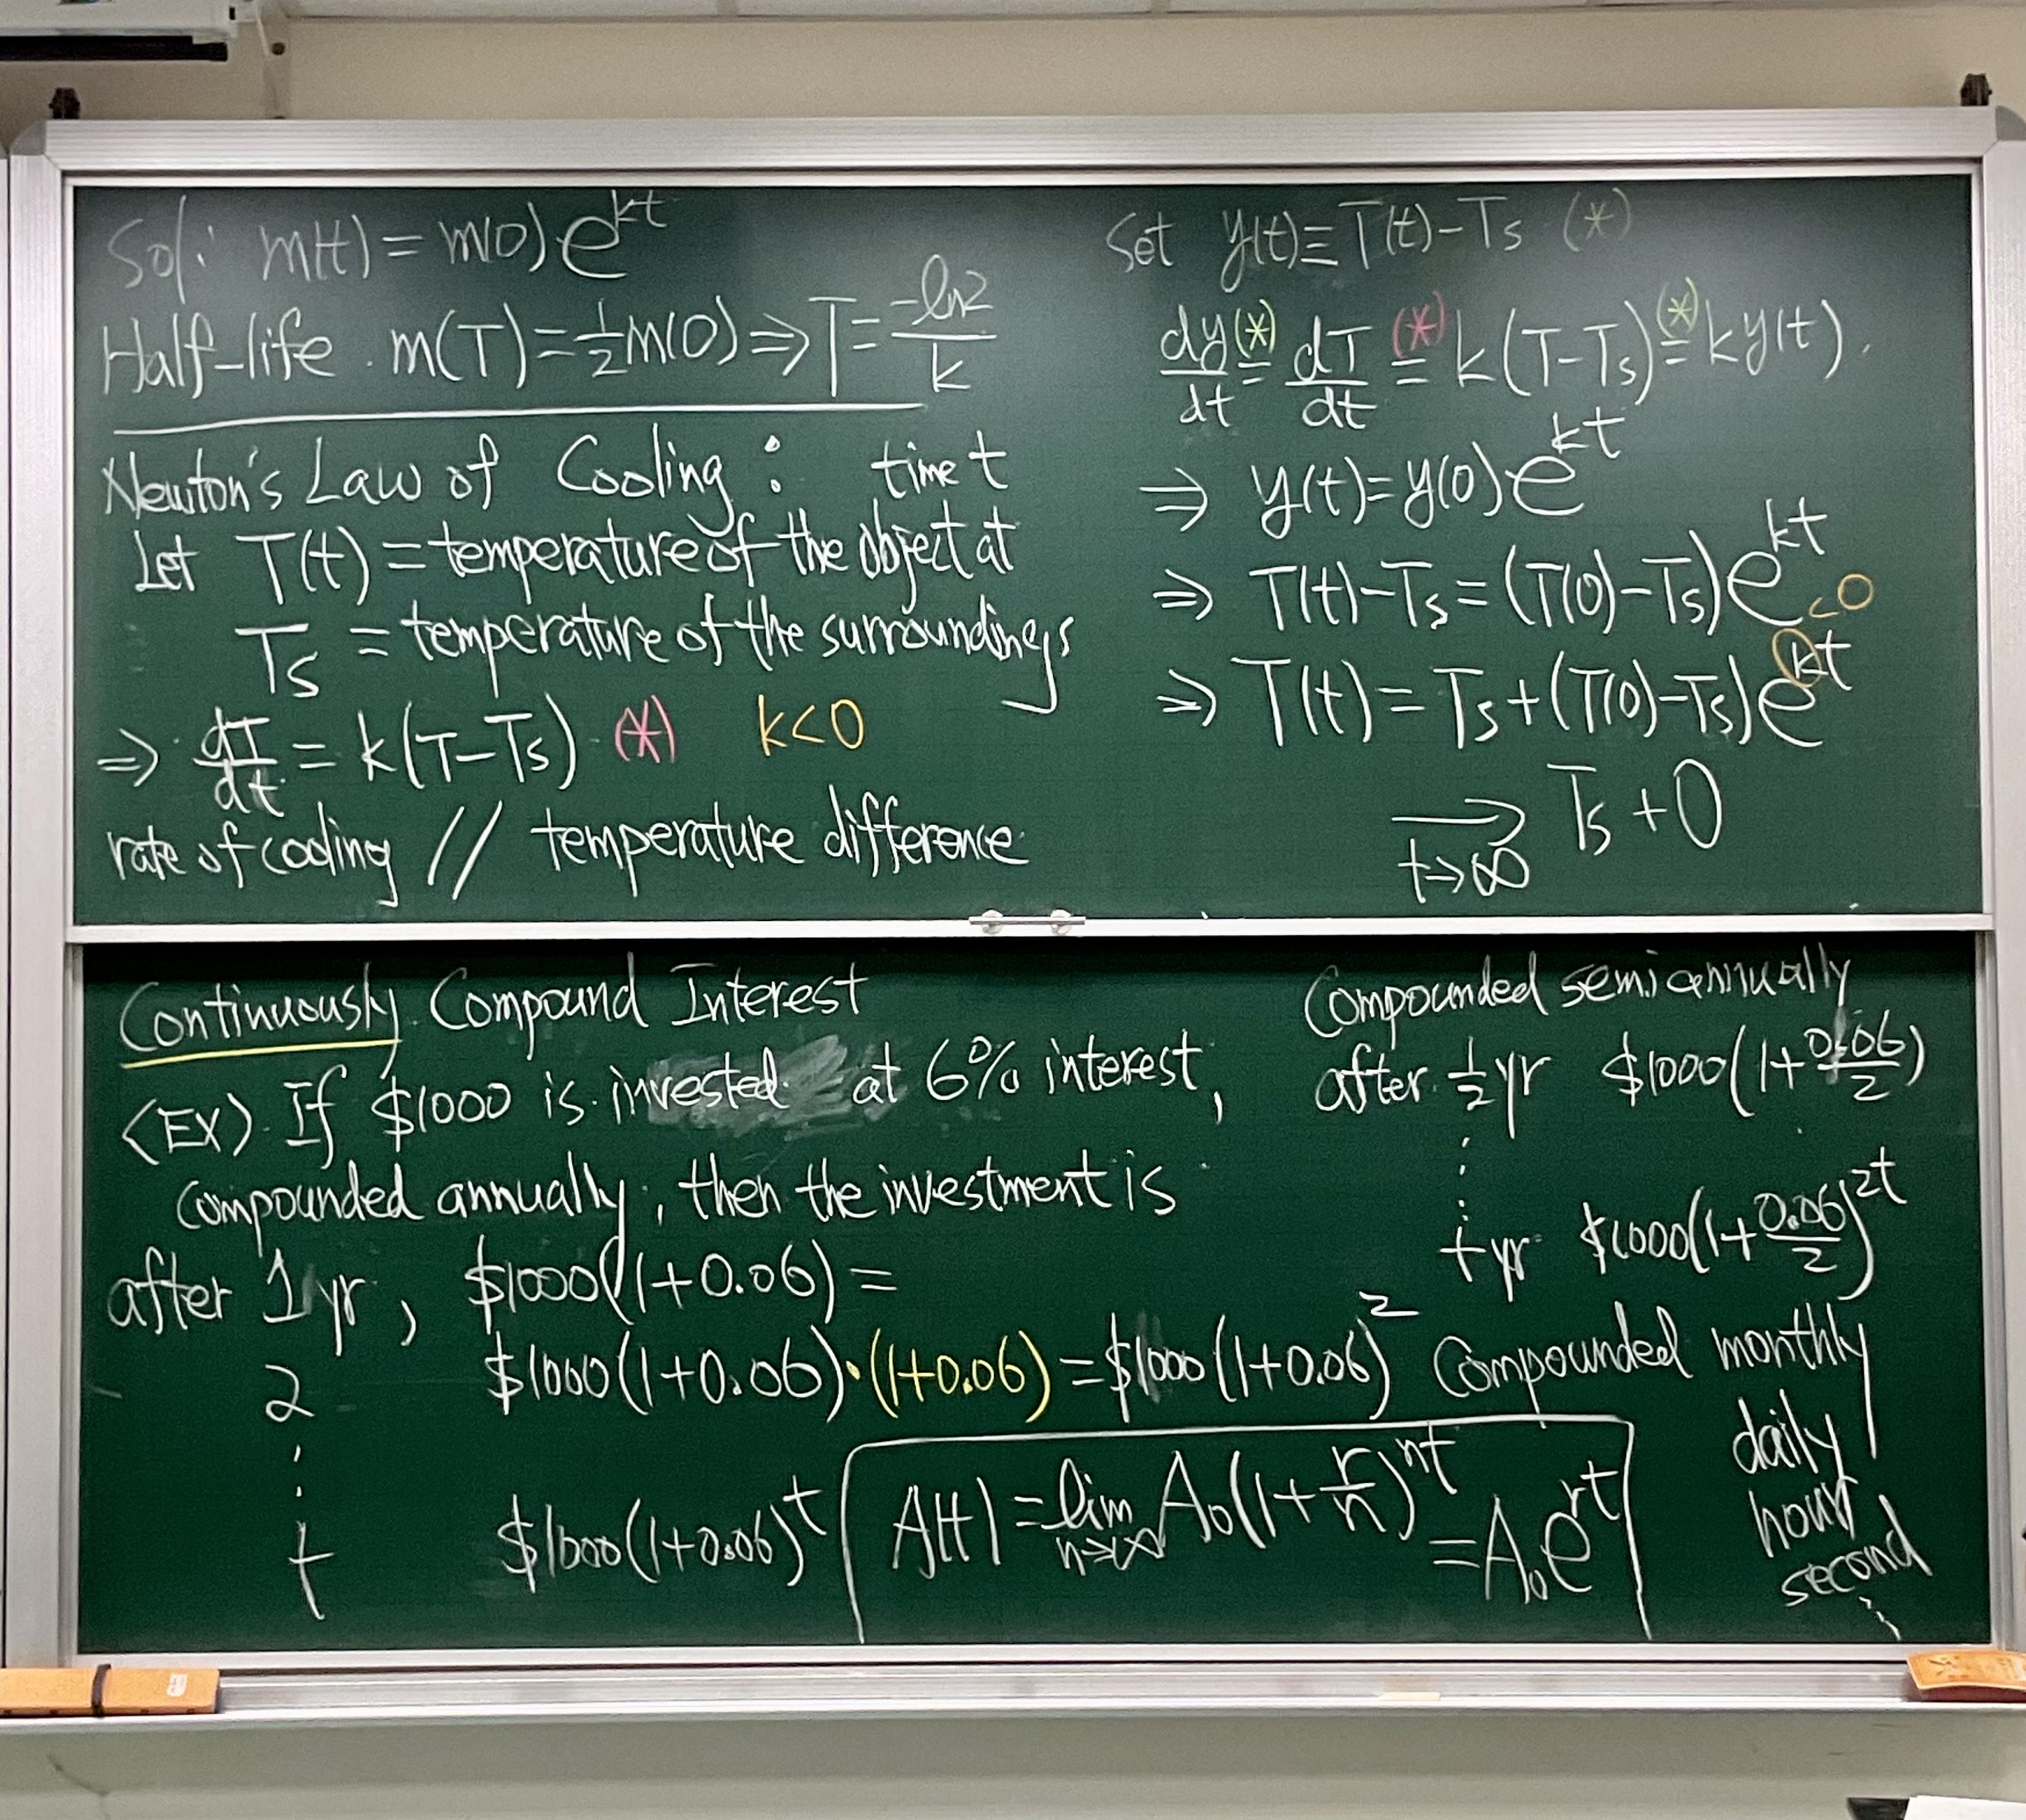 Sol: m(t) = m(0) e^{kt}
Half-life. m(T) = 1/2 m(0) ⇒ T = -ln2/k
Newton's Law of Cooling : time t
Let T(t) = temperature of the object at
Ts = temperature of the surroundings
⇒ dT/dt = k(T-Ts) (*) k<0
rate of cooling // temperature difference
Set y(t) ≡ T(t)-Ts (*)
dy/dt (*)= dT/dt (*)= k(T-Ts) (*)= ky(t).
⇒ y(t) = y(0) e^{kt}
⇒ T(t)-Ts = (T(0)-Ts) e^{kt}
<0
⇒ T(t) = Ts + (T(0)-Ts) e^{kt}
→ t→∞ Ts + 0
Continuously Compound Interest
<EX> If $1000 is invested at 6% interest,
compounded annually, then the investment is
after 1 yr, $1000(1+0.06) =
2 $1000(1+0.06)·(1+0.06) = $1000(1+0.06)^2
⋮
t $1000(1+0.06)^t
A(t) = lim n→∞ A₀(1+r/n)^{nt}
= A₀e^{rt}
Compounded semiannually
after 1/2 yr $1000(1+0.06/2)
⋮
t yr $1000(1+0.06/2)^{2t}
Compounded monthly
daily
hour
second
⋮